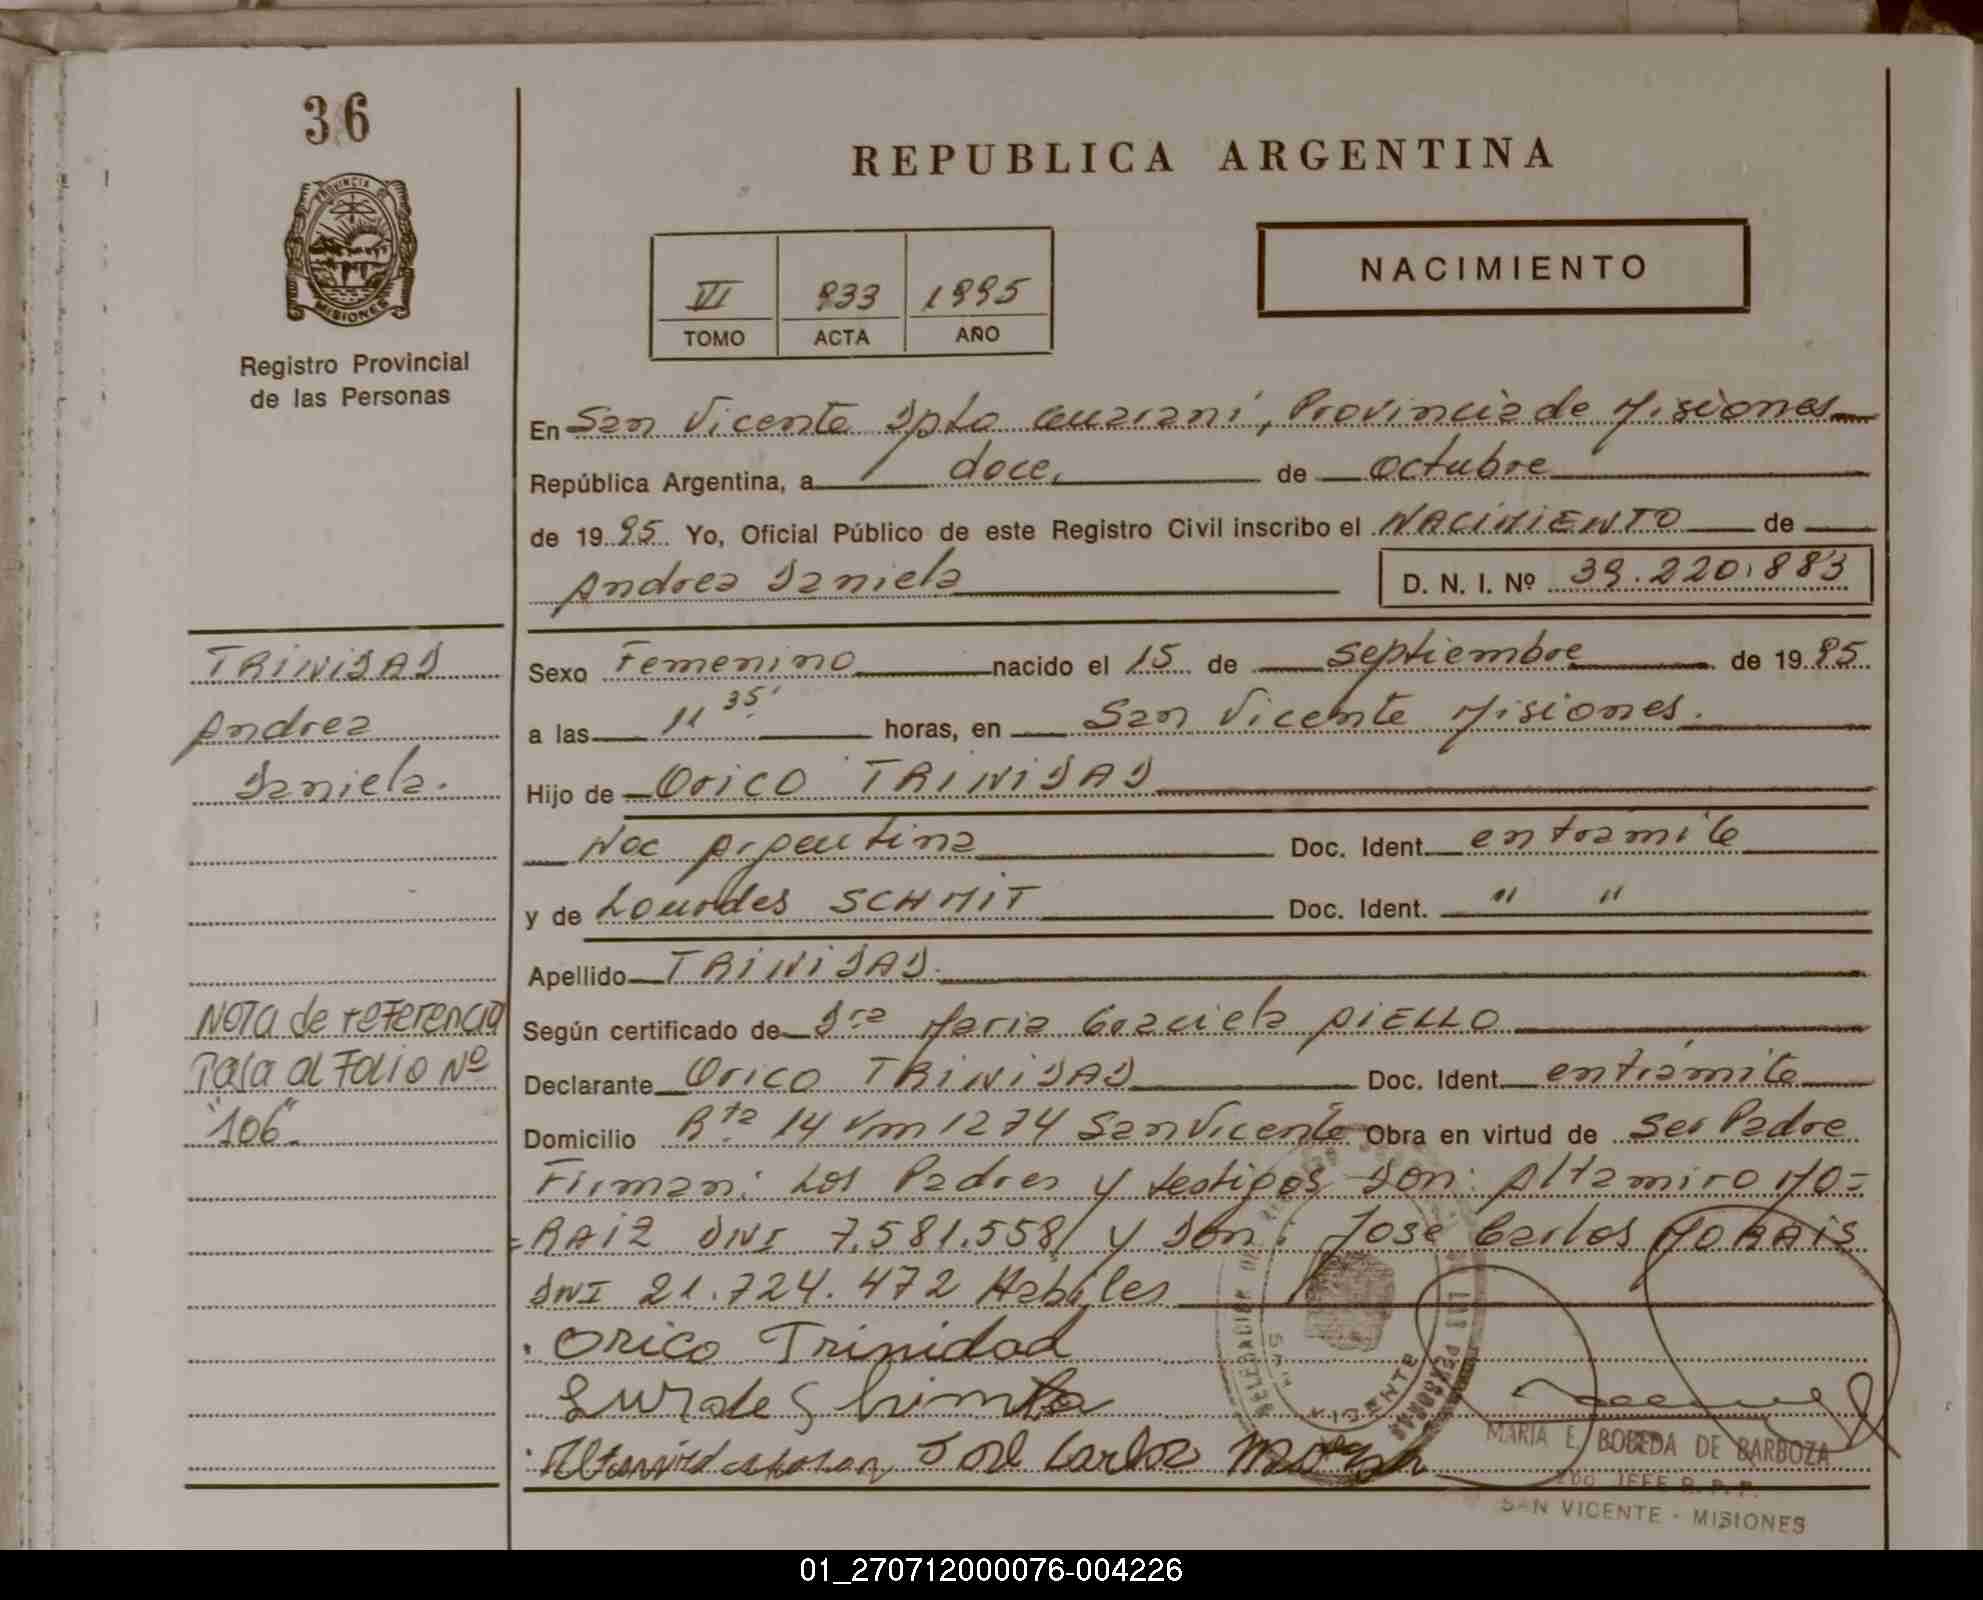 36
REPUBLICA ARGENTINA
PROVINCIA DE
MISIONES
Registro Provincial
de las Personas
VI 933 1995
TOMO ACTA AÑO
NACIMIENTO
En San Vicente Dpto Guaraní, Provincia de Misiones
República Argentina, a doce, de octubre
de 1995 Yo, Oficial Público de este Registro Civil inscribo el NACIMIENTO de
Andrea Daniela D. N. I. Nº 39.220.883
TRINIDAD
Andrea
Daniela.
Sexo Femenino nacido el 15 de septiembre de 1995
a las 11 35' horas, en San Vicente Misiones.
Hijo de Orico TRINIDAD
Nac Argentina Doc. Ident. en trámite
y de Lourdes SCHMIT Doc. Ident. " "
Apellido TRINIDAD.
Nota de referencia
Pasa al Folio Nº
"106"
Según certificado de Dra Maria Graciela AIELLO
Declarante Orico TRINIDAD Doc. Ident. en trámite
Domicilio Rta 14 Km 1274 San Vicente Obra en virtud de Ser Padre
Firman: Los Padres y testigos Don: Altamiro MO=
=RAIZ DNI 7.581.558/ y Don: Jose Carlos MORAIS
DNI 21.724.472 Habiles
Orico Trinidad
Jose Carlos
DELEGACION
SAN VICENTE
PERSONAS
MARIA E. BOBEDA DE BARBOZA
2DO JEFE R. P. P.
SAN VICENTE - MISIONES
01_270712000076-004226